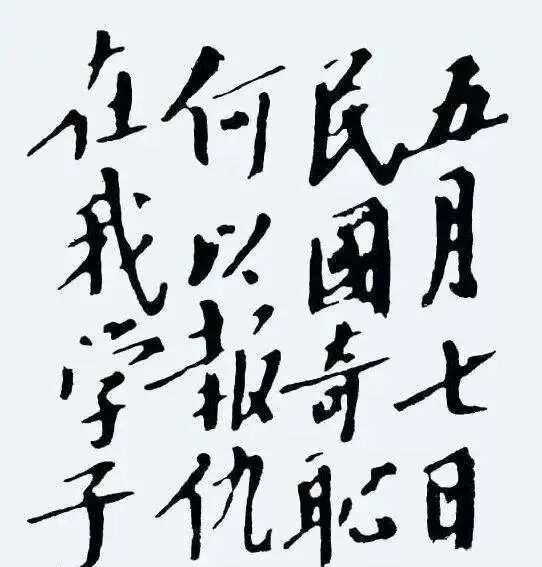 五月七日
民國奇恥
何以报仇
在我学子